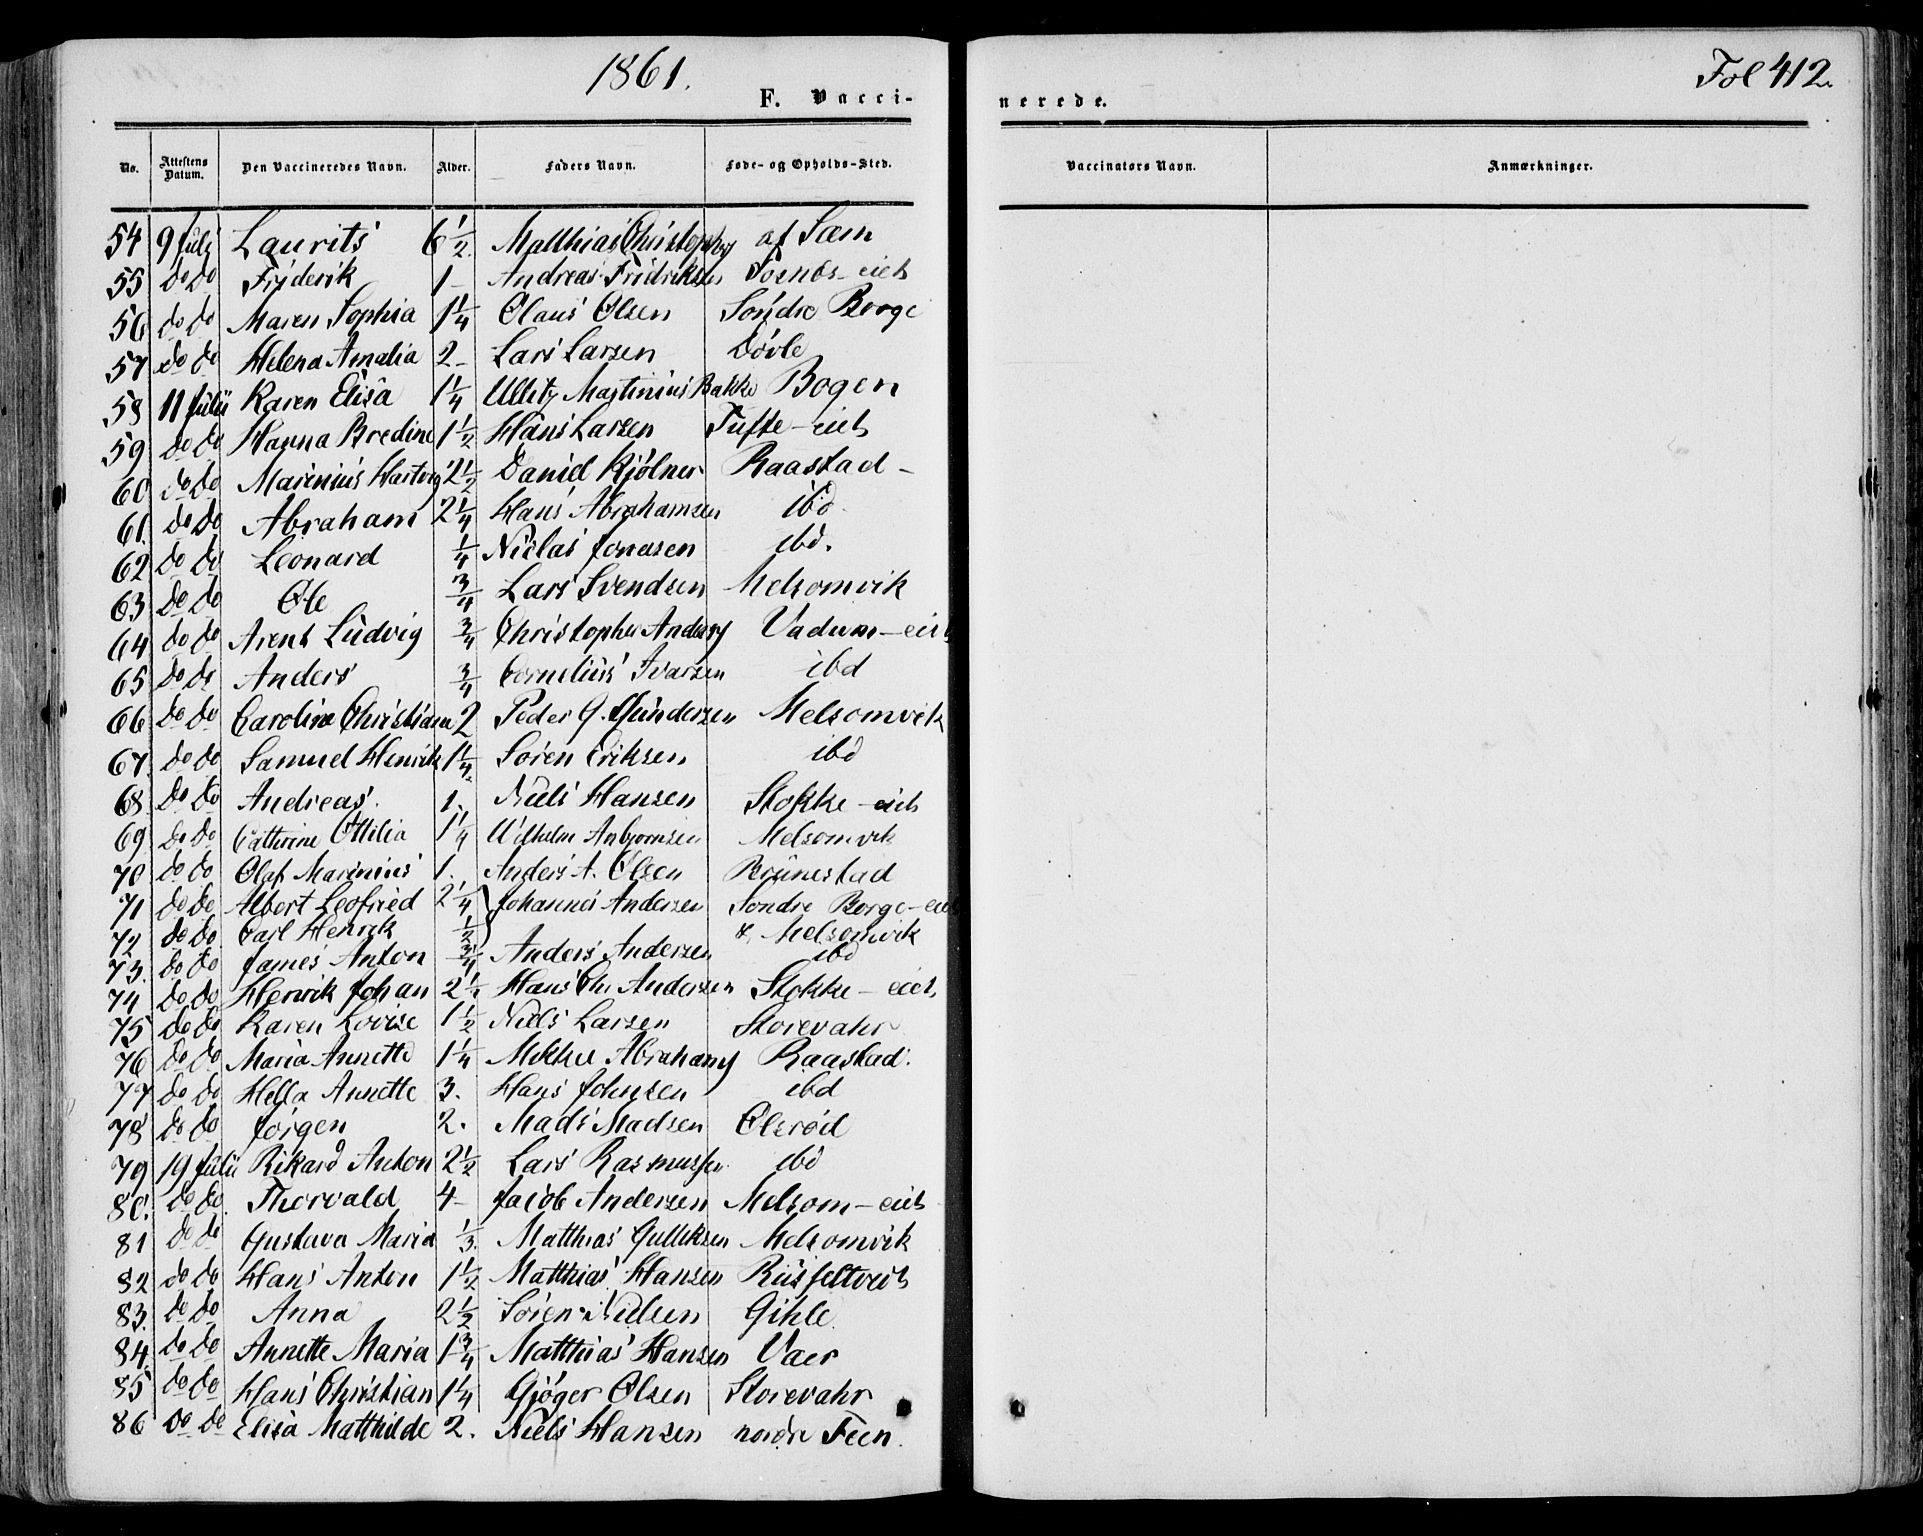 1861.
Fol 412.
F. Vacci-
nerede.
No. Attestens Datum. Den Vaccineredes Navn. Alder. Faders Navn. Føde- og Opholds-Sted. Vaccinators Navn. Anmærkninger.
54 9 Juli Laurits 6 1/2 Matthias Christophs af Sæm
55 do do Friderik 1 - Andreas Fridriksen eiet
56 do do Maren Sophia 1 1/4 Olaus Olsen Søndre Borge
57 do do Helena Amalia 2 - Lars Larsen Døvle
58 11 Julii Karen Elisa 1 1/4 Martinius Bakke Bogen
59 do do Hanna Bredine 1 1/2 Hans Larsen Tufte-eiet
60 do do Marinius Hartvig 2 1/2 Daniel Kjølner Raastad -
61. do do Abraham 2 1/4 Hans Abrahamsen ibd.
62 do do Leonard 1/4 Niclas Jonasen ibd.
63 do do Ole 3/4 Lars Svendsen Melsomvik
64 do do Arent Ludvig 3/4 Christopher Anders Vadum-eiet
65 do do Anders 3/4 Cornelius Ivarsen ibd
66 do do Caroline Christiana 2 Peder G. Gundersen Melsomvik
67. do do Samuel Henrik 1 1/4 Søren Eriksen ibd
68 do do Andreas. 1. Niels Hansen Stokke-eiet
69 do do Cathrine Ottilia 1 1/4 Wilhelm Anbjørnsen Melsomvik
70 do do Olaf Marinius 1. Anders A. Olsen Brunestad
71 do do Albert Leofried 2 1/4 Johannes Andersen Søndre Borge-eiet
72 do do Carl Henrik 1/2 Melsomvik
73. do do James Anton 3/4 Anders Andersen ibd
74 do do Henrik Johan 2 1/4 Hans Chr Andersen Stokke-eiet
75 do do Karen Lovise 1 1/2 Niels Larsen Storevahr
76 do do Maria Annette 1 1/4 Mikkel Abrahams Raastad.
77 do do Hella Annette 3. Hans Johnsen ibd
78 do do Jørgen 2. Mads Madsen Olsrød
79 19 Julii Rikard Anton 2 1/2 Lars Rasmussen ibd
80. do do. Thorvald 4- Jacob Andersen Melsom-eiet
81 do do Gustava Maria 1/3. Matthias Gulliksen Melsomvik
82 do do Hans Anton 1 1/2 Matthias Hansen
83. do do Anna 2 1/2 Søren Nielsen Gihle
84. do do Annette Maria 1 3/4 Matthias Hansen Vaer
85 do do Hans Christian 1 1/4 Gjøger Olsen Storevahr
86 do do Elisa Matthilde 2. Niels Hansen nordre Feen.